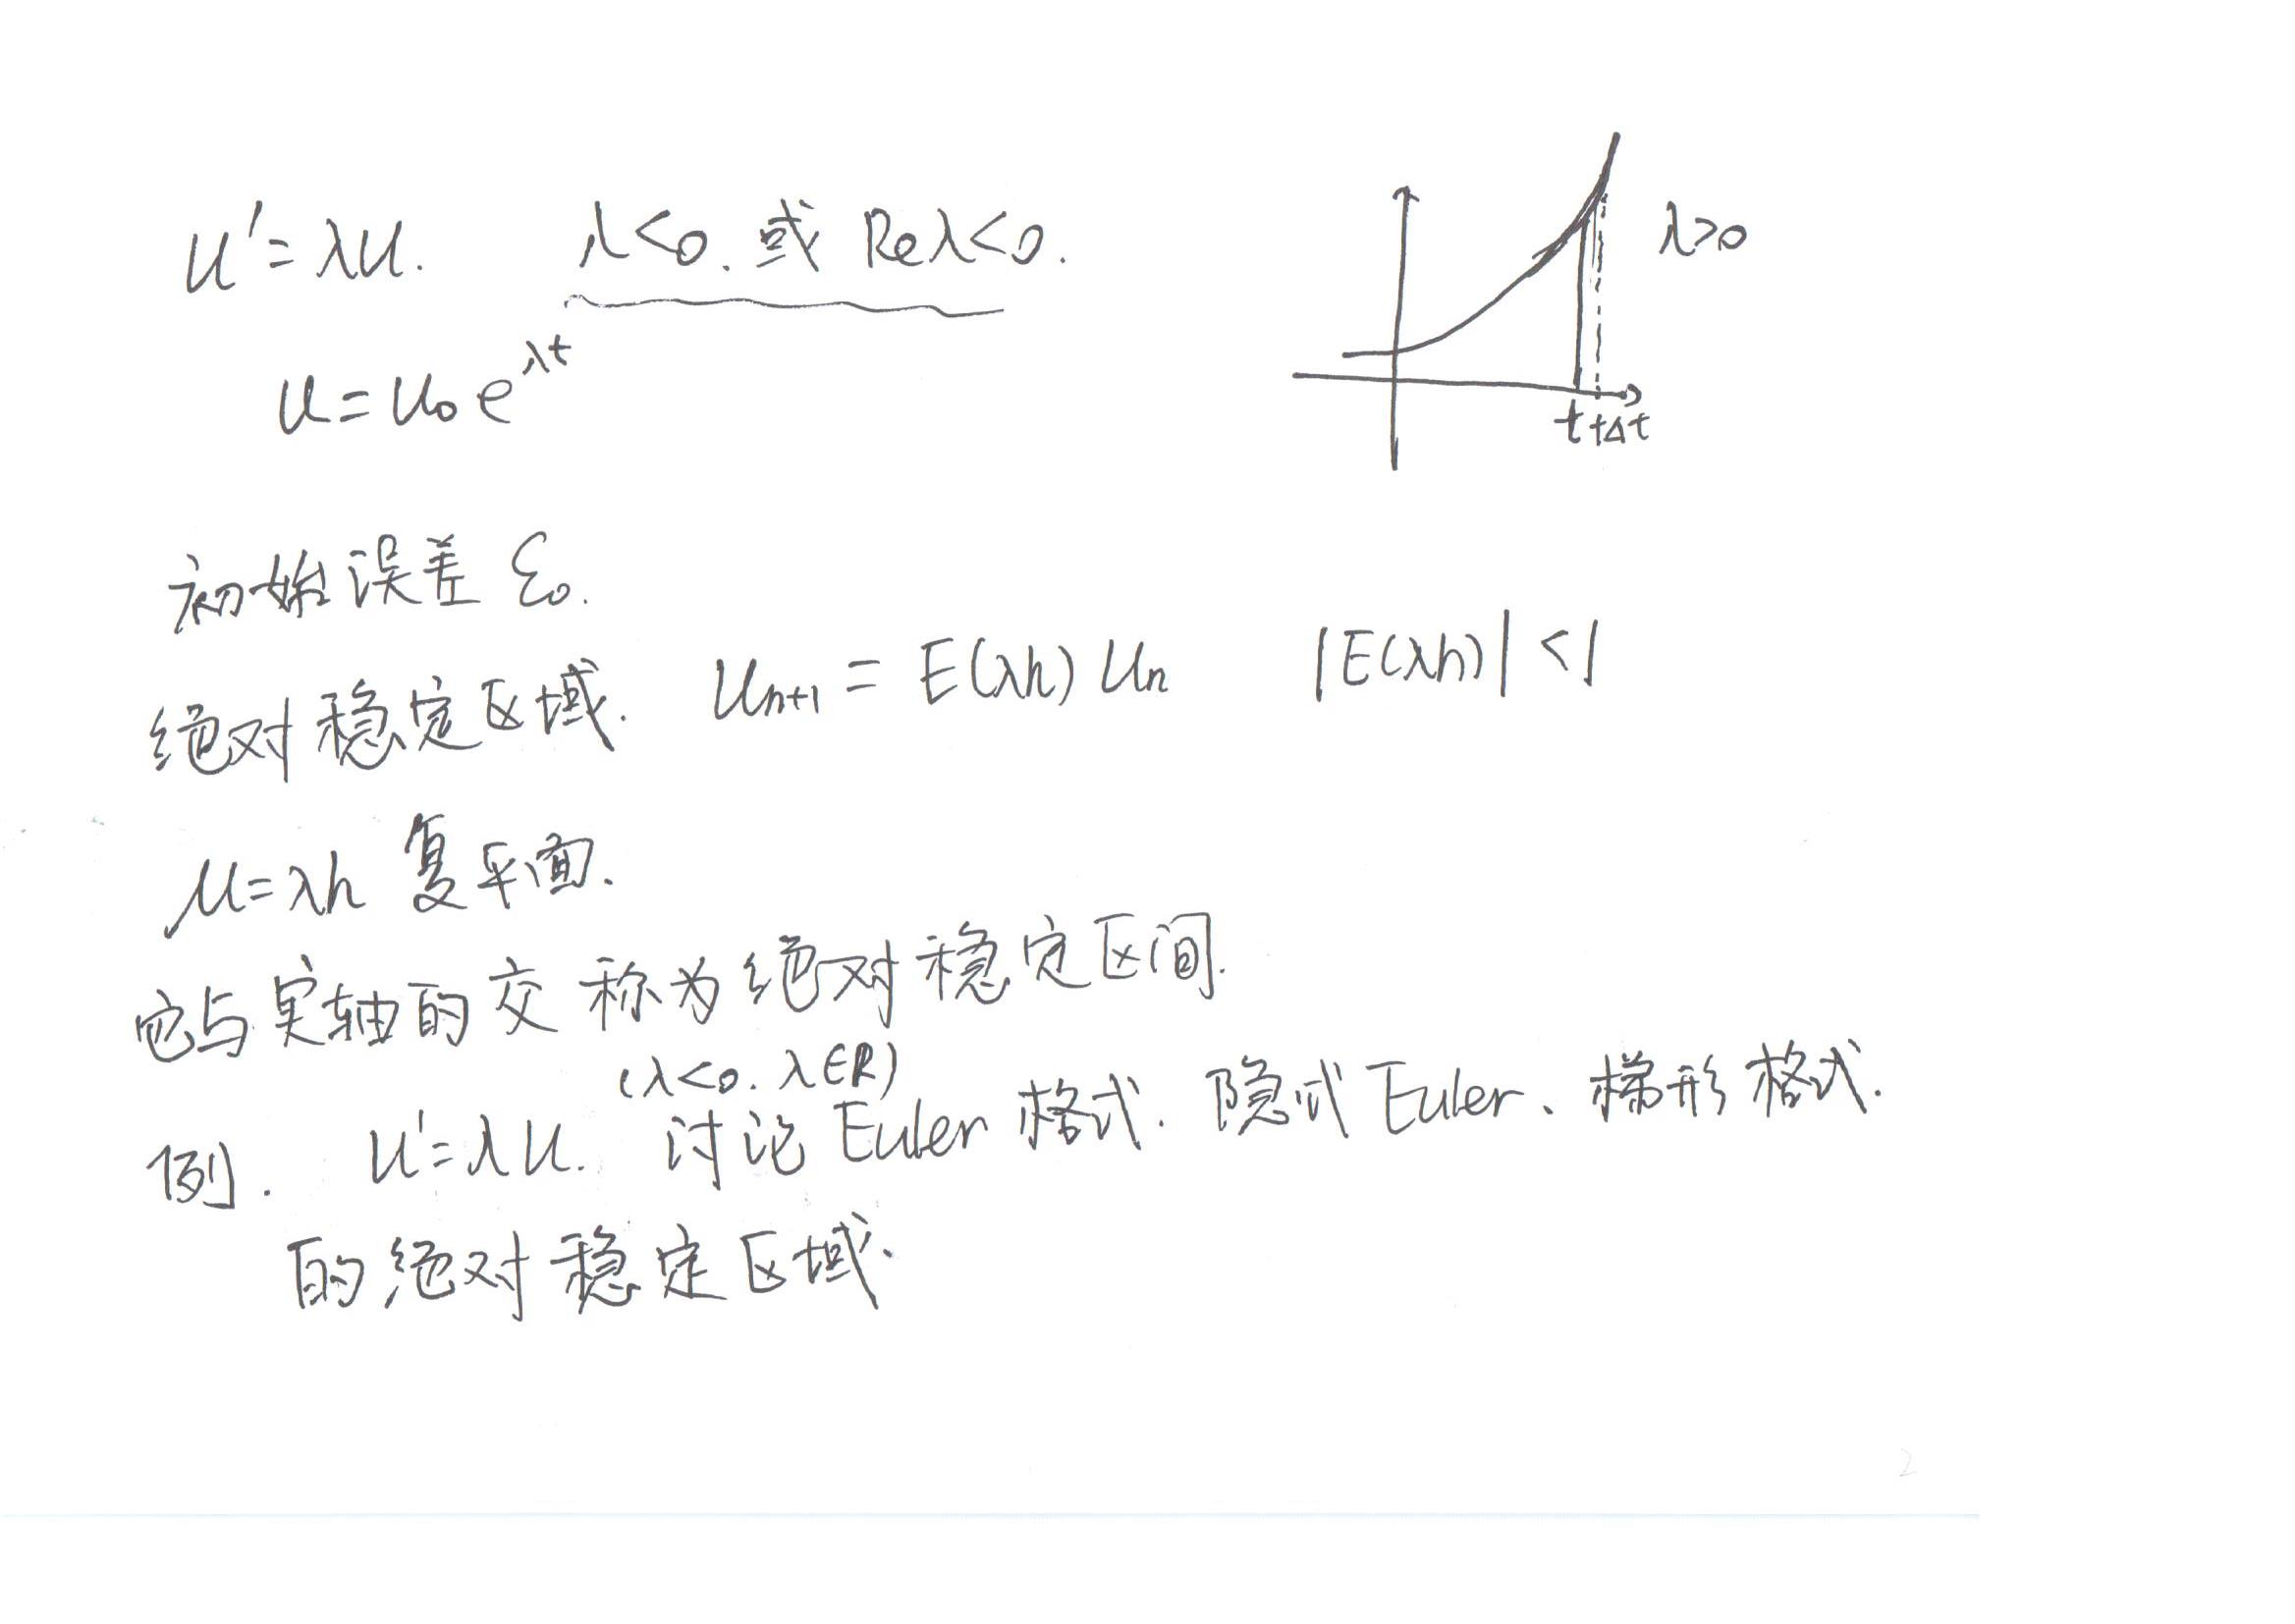 u' = λu. λ<0. 或 Reλ<0.
λ>0
u = u₀ e^{λt}
t t+Δt
初始误差 ε₀.
绝对稳定区域. uₙ₊₁ = E(λh) uₙ |E(λh)| < 1
μ=λh 复平面.
它与实轴的交 称为绝对稳定区间.
(λ<0. λ∈R)
例. u'=λu. 讨论 Euler 格式. 隐式 Euler、梯形格式.
的绝对稳定区域.
2